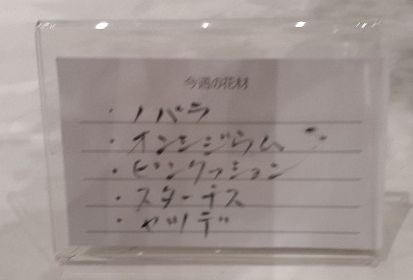 今週の花材
・ノバラ
・オンシジウム
・ピンクッション
・スターチス
・ヤツデ